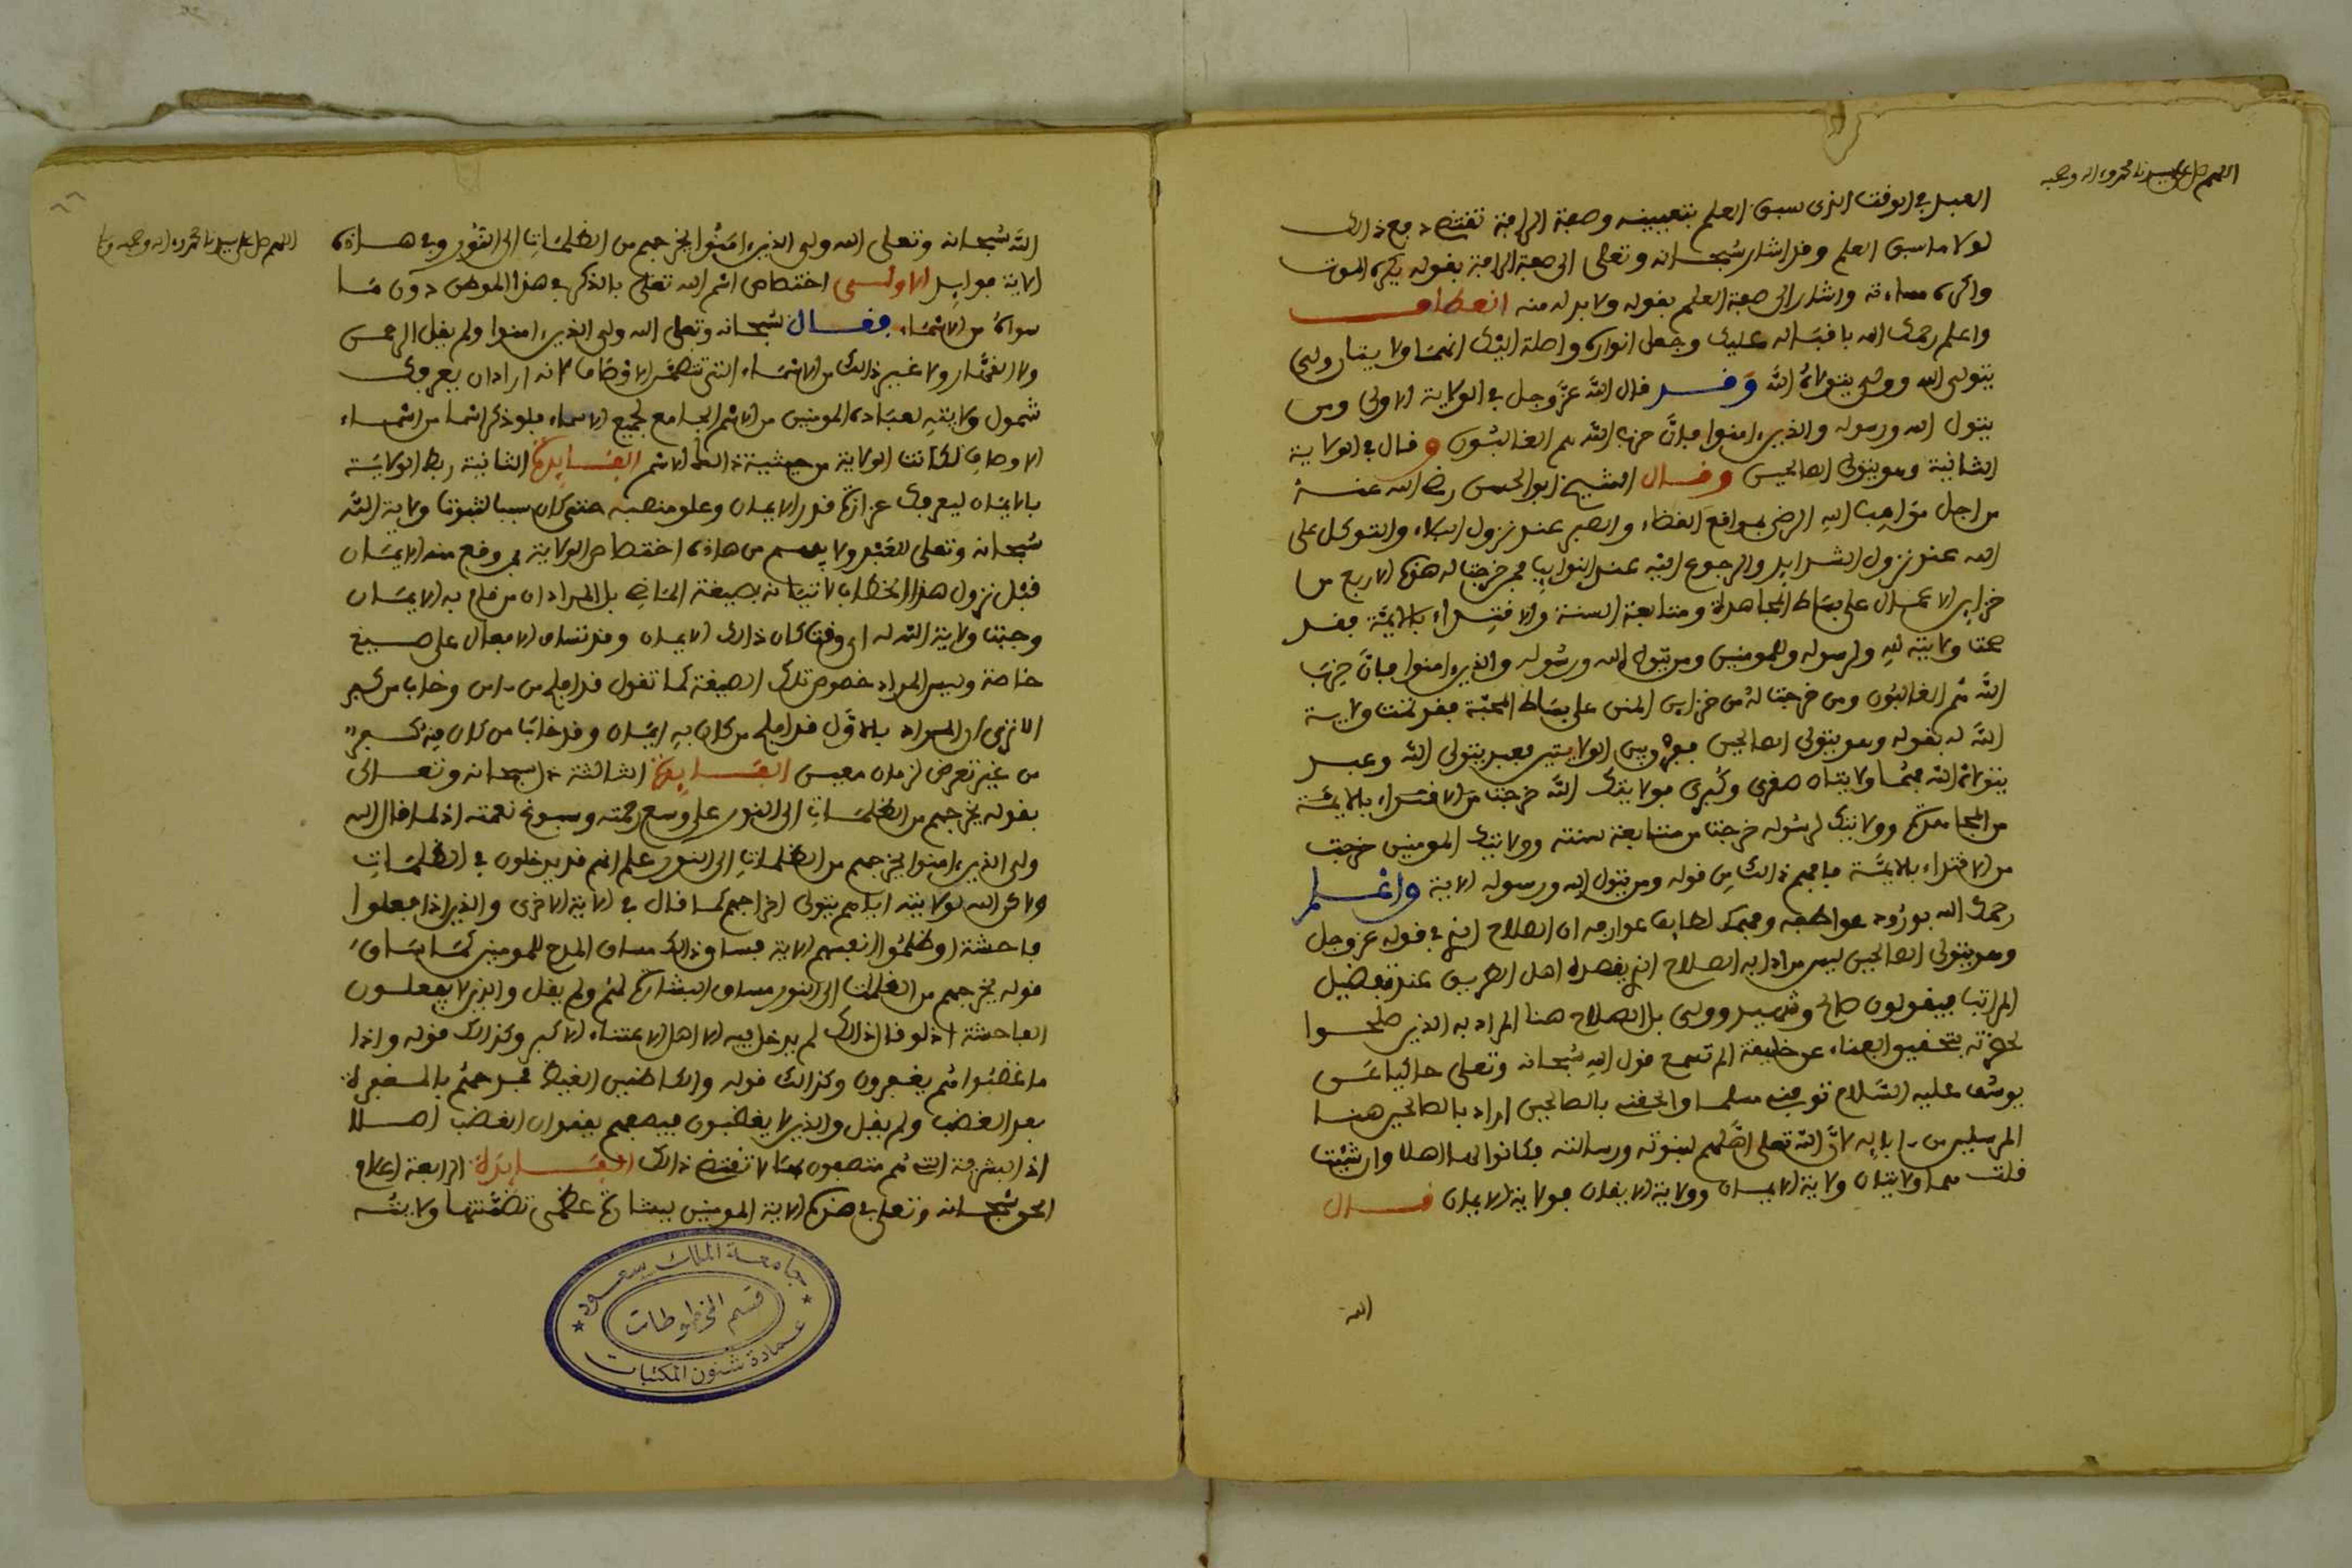 اللهم صل على سيدنا محمد وءاله وصحبه
العبد في الوقت الذي سبق العلم بتعيينه وصفة الرافة تقتضي دفع ذالك
لولا ما سبق العلم وقد اشار سبحانه وتعلى الى صفة الرافة بقوله يكره الموت
واكره مساءته واشار الى صفة العلم بقوله ولا بد له منه انعطاف
واعلم رحمك الله باقباله عليك وجعل انواره واصلة اليك انهما ولايتان ولي
يتولى الله وولي يتولاه الله وقد قال الله عز وجل في الولاية الاولى ومن
يتول الله ورسوله والذين ءامنوا فان حزب الله هم الغالبون وقال في الولاية
الثانية وهو يتولى الصالحين وقال الشيخ ابو الحسن رضي الله عنه
من اجل مواهب الله الرضى بمواقع القضاء والصبر عند نزول البلاء والتوكل على
الله عند نزول الشدايد والرجوع اليه عند النوايب فمن خرجت له هذه الاربع من
خزاين الاعمال على بساط المجاهدة ومتابعة السنة والاقتداء بالايمة فقد
صحت ولايته لله ولرسوله وللمومنين ومن يتول الله ورسوله والذين ءامنوا فان حزب
الله هم الغالبون ومن خرجت له من خزاين المنن على بساط المحبة فقد تمت ولاية
الله له بقوله وهو يتولى الصالحين ففرق بين الولايتين فعبد يتولى الله وعبد
يتولاه الله فهما ولايتان صغرى وكبرى فولايتك الله خرجت من
من المجاهدة وولايتك لرسوله خرجت من متابعة سنته وولايتك المومنين خرجت
من الاقتداء بالايمة فافهم ذالك من قوله ومن يتول الله ورسوله الاية واعلم
رحمك الله بورود عواطفه وفهمك لطايف عوارفه ان الصلاح الذي في قوله عز وجل
وهو يتولى الصالحين ليس مراد به الصلاح الذي يقصده اهل الطريق عند تفضيل
المراتب فيقولون صالح وشهيد وولي بل الصلاح هنا المراد به الذين صلحوا
لحضرته بتحقيق الفناء عن خليقته الم تسمع قول الله سبحانه وتعلى حاكيا عن
يوسف عليه السلام توفني مسلما والحقني بالصالحين اراد بالصالحين هنا
المرسلين من ءابايه لان الله تعلى اهلهم لنبوته ورسالته فكانوا لها اهلا وان شيت
قلت هما ولايتان ولاية الايمان وولاية الايقان فولاية الايمان قال
الله
اللهم صل على سيدنا محمد وءاله وصحبه وسلم
٦٦
الله سبحانه وتعلى الله ولي الذين ءامنوا يخرجهم من الظلمات الى النور وفي هذه
الاية فوايد الاولى اختصاص اسم الله تعلى بالذكر في هذا الموطن دون ما
سواه من الاسماء فقال سبحانه وتعلى الله ولي الذين ءامنوا ولم يقل الرحمن
ولا القهار ولا غير ذالك من الاسماء التي تتضمن الاوصاف لانه اراد ان يعرفك
شمول ولايته لعباده المومنين من الاسم الجامع لجميع الاسماء فلو ذكر اسما من اسماء
الاوصاف لكانت الولاية من حيثية ذالك الاسم الفايدة الثانية ربط الولاية
بالايمان ليعرفك عزازة قدر الايمان وعلو منصبه حتى كان سببا لثبوت ولاية الله
سبحانه وتعلى للعبد ولا يفهم من هاذه اختصاص الولاية بمن وقع منه الايمان
قبل نزول هذا الخطاب لاتيانه بصيغة الماضي بل المراد ان من قام به الايمان
وجبت ولاية الله له اي وقت كان ذالك الايمان وقد تساق الافعال على صيغ
خاصة وليس المراد خصوص تلك الصيغة كما تقول قد افلح من ءامن وخاب من كفر
الا ترى ان المراد بالاول قد افلح من كان به ايمان وقد خاب من كان منه كفر
من غير تعرض لزمان معين الفايدة الثالثة سبحانه وتعالى
بقوله يخرجهم من الظلمات الى النور على وسع رحمته وسبوغ نعمته اذ لما قال الله
ولي الذين ءامنوا يخرجهم من الظلمات الى النور علم انهم قد يدخلون في الظلمات
ولاكن الله لولايته اياهم يتولى اخراجهم كما قال في الاية الاخرى والذين اذا فعلوا
فاحشة او ظلموا انفسهم الاية فساق ذالك مساق المدح للمومنين كما ساق
قوله يخرجهم من الظلمات الى النور مساق البشارة لهم ولم يقل والذين لا يفعلون
الفاحشة اذ لو قال ذالك لم يدخل فيه الا اهل الاعتناء الاكبر وكذالك قوله واذا
ما غضبوا هم يغفرون وكذالك قوله والكاظمين الغيظ فمدحهم بالمغفرة
بعد الغضب ولم يقل والذين لا يغضبون فيصفهم بفقدان الغضب اصلا
اذ البشرية التي هم متصفون بها لا تقتضي ذالك الفايدة الرابعة اعلام
الحق سبحانه وتعلى في هذه الاية المومنين ببشارة عظمى تضمنتها ولايته
جامعة الملك سعود
قسم المخطوطات
عمادة شئون المكتبات